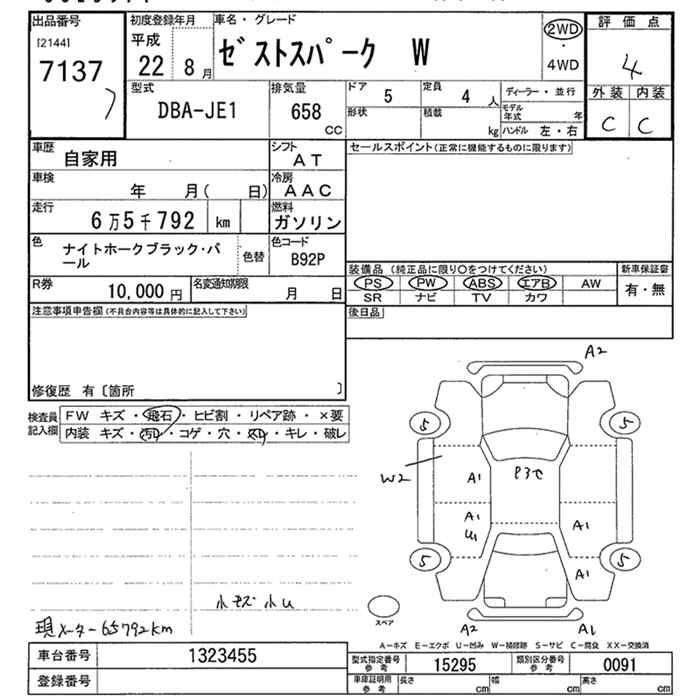 出品番号
[2144]
7137
初度登録年月
平成
22 8月
車名・グレード
ゼストスパーク W
2WD
・
4WD
評価点
4
外装 内装
C C
型式
DBA-JE1
排気量
658
CC
ドア
5
定員
4 人
形状
積載
kg
ディーラー・並行
モデル年式 年
ハンドル 左・右
車歴
自家用
シフト
AT
車検
年 月( 日)
冷房
AAC
走行
6万5千792 km
燃料
ガソリン
色
ナイトホークブラック・パール
色替
色コード
B92P
R券
10,000 円
名変通知期限
月 日
セールスポイント(正常に機能するものに限ります)
装備品 (純正品に限り○をつけてください)
PS PW ABS エアB AW
SR ナビ TV カワ
新車保証書
有・無
後日品
注意事項申告欄(不具合内容等は具体的に記入して下さい)
修復歴 有〔箇所 〕
検査員記入欄
FW キズ・飛石・ヒビ割・リペア跡・×要
内装 キズ・汚レ・コゲ・穴・スレ・キレ・破レ
A2
5 5
W2
A1
A1
U1
A1
A1
5 5
A2 A1
スペア
小キズ 小U
現メーター65792km
A-キズ E-エクボ U-凹み W-補修跡 S-サビ C-腐食 XX-交換済
車台番号
1323455
登録番号
型式指定番号
参考
15295
類別区分番号
参考
0091
車庫証明用
参考
長さ cm 幅 cm 高さ cm